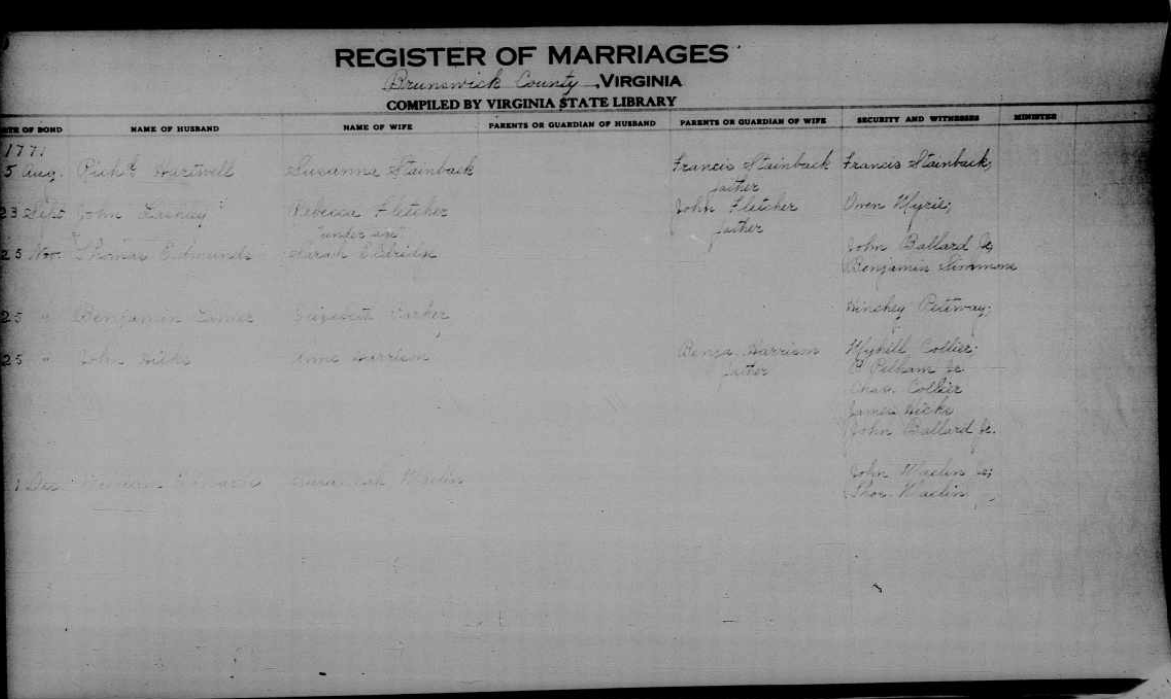 REGISTER OF MARRIAGES
Brunswick County, VIRGINIA
COMPILED BY VIRGINIA STATE LIBRARY
DATE OF BOND NAME OF HUSBAND NAME OF WIFE PARENTS OR GUARDIAN OF HUSBAND PARENTS OR GUARDIAN OF WIFE SECURITY AND WITNESSES MINISTER
1771
5 Aug. Richd Hartwell Susanna Stainback Francis Stainback Francis Stainback;
father
23 Sept John Rebecca Fletcher John Fletcher Owen Myrie;
"under age" father
25 Nov. Thomas Edmunds Sarah Eldridge John Ballard Jr;
Benjamin Simmons
25 " Benjamin Lanier Elizabeth Parker Hinchey Petway;
25 " John Hicks Anne Harrison Benja. Harrison Myhill Collier;
father P Pelham Jr
Chas. Collier
James Hicks
John Ballard Jr.
Dec William Maclin John Maclin Jr;
Thos. Maclin